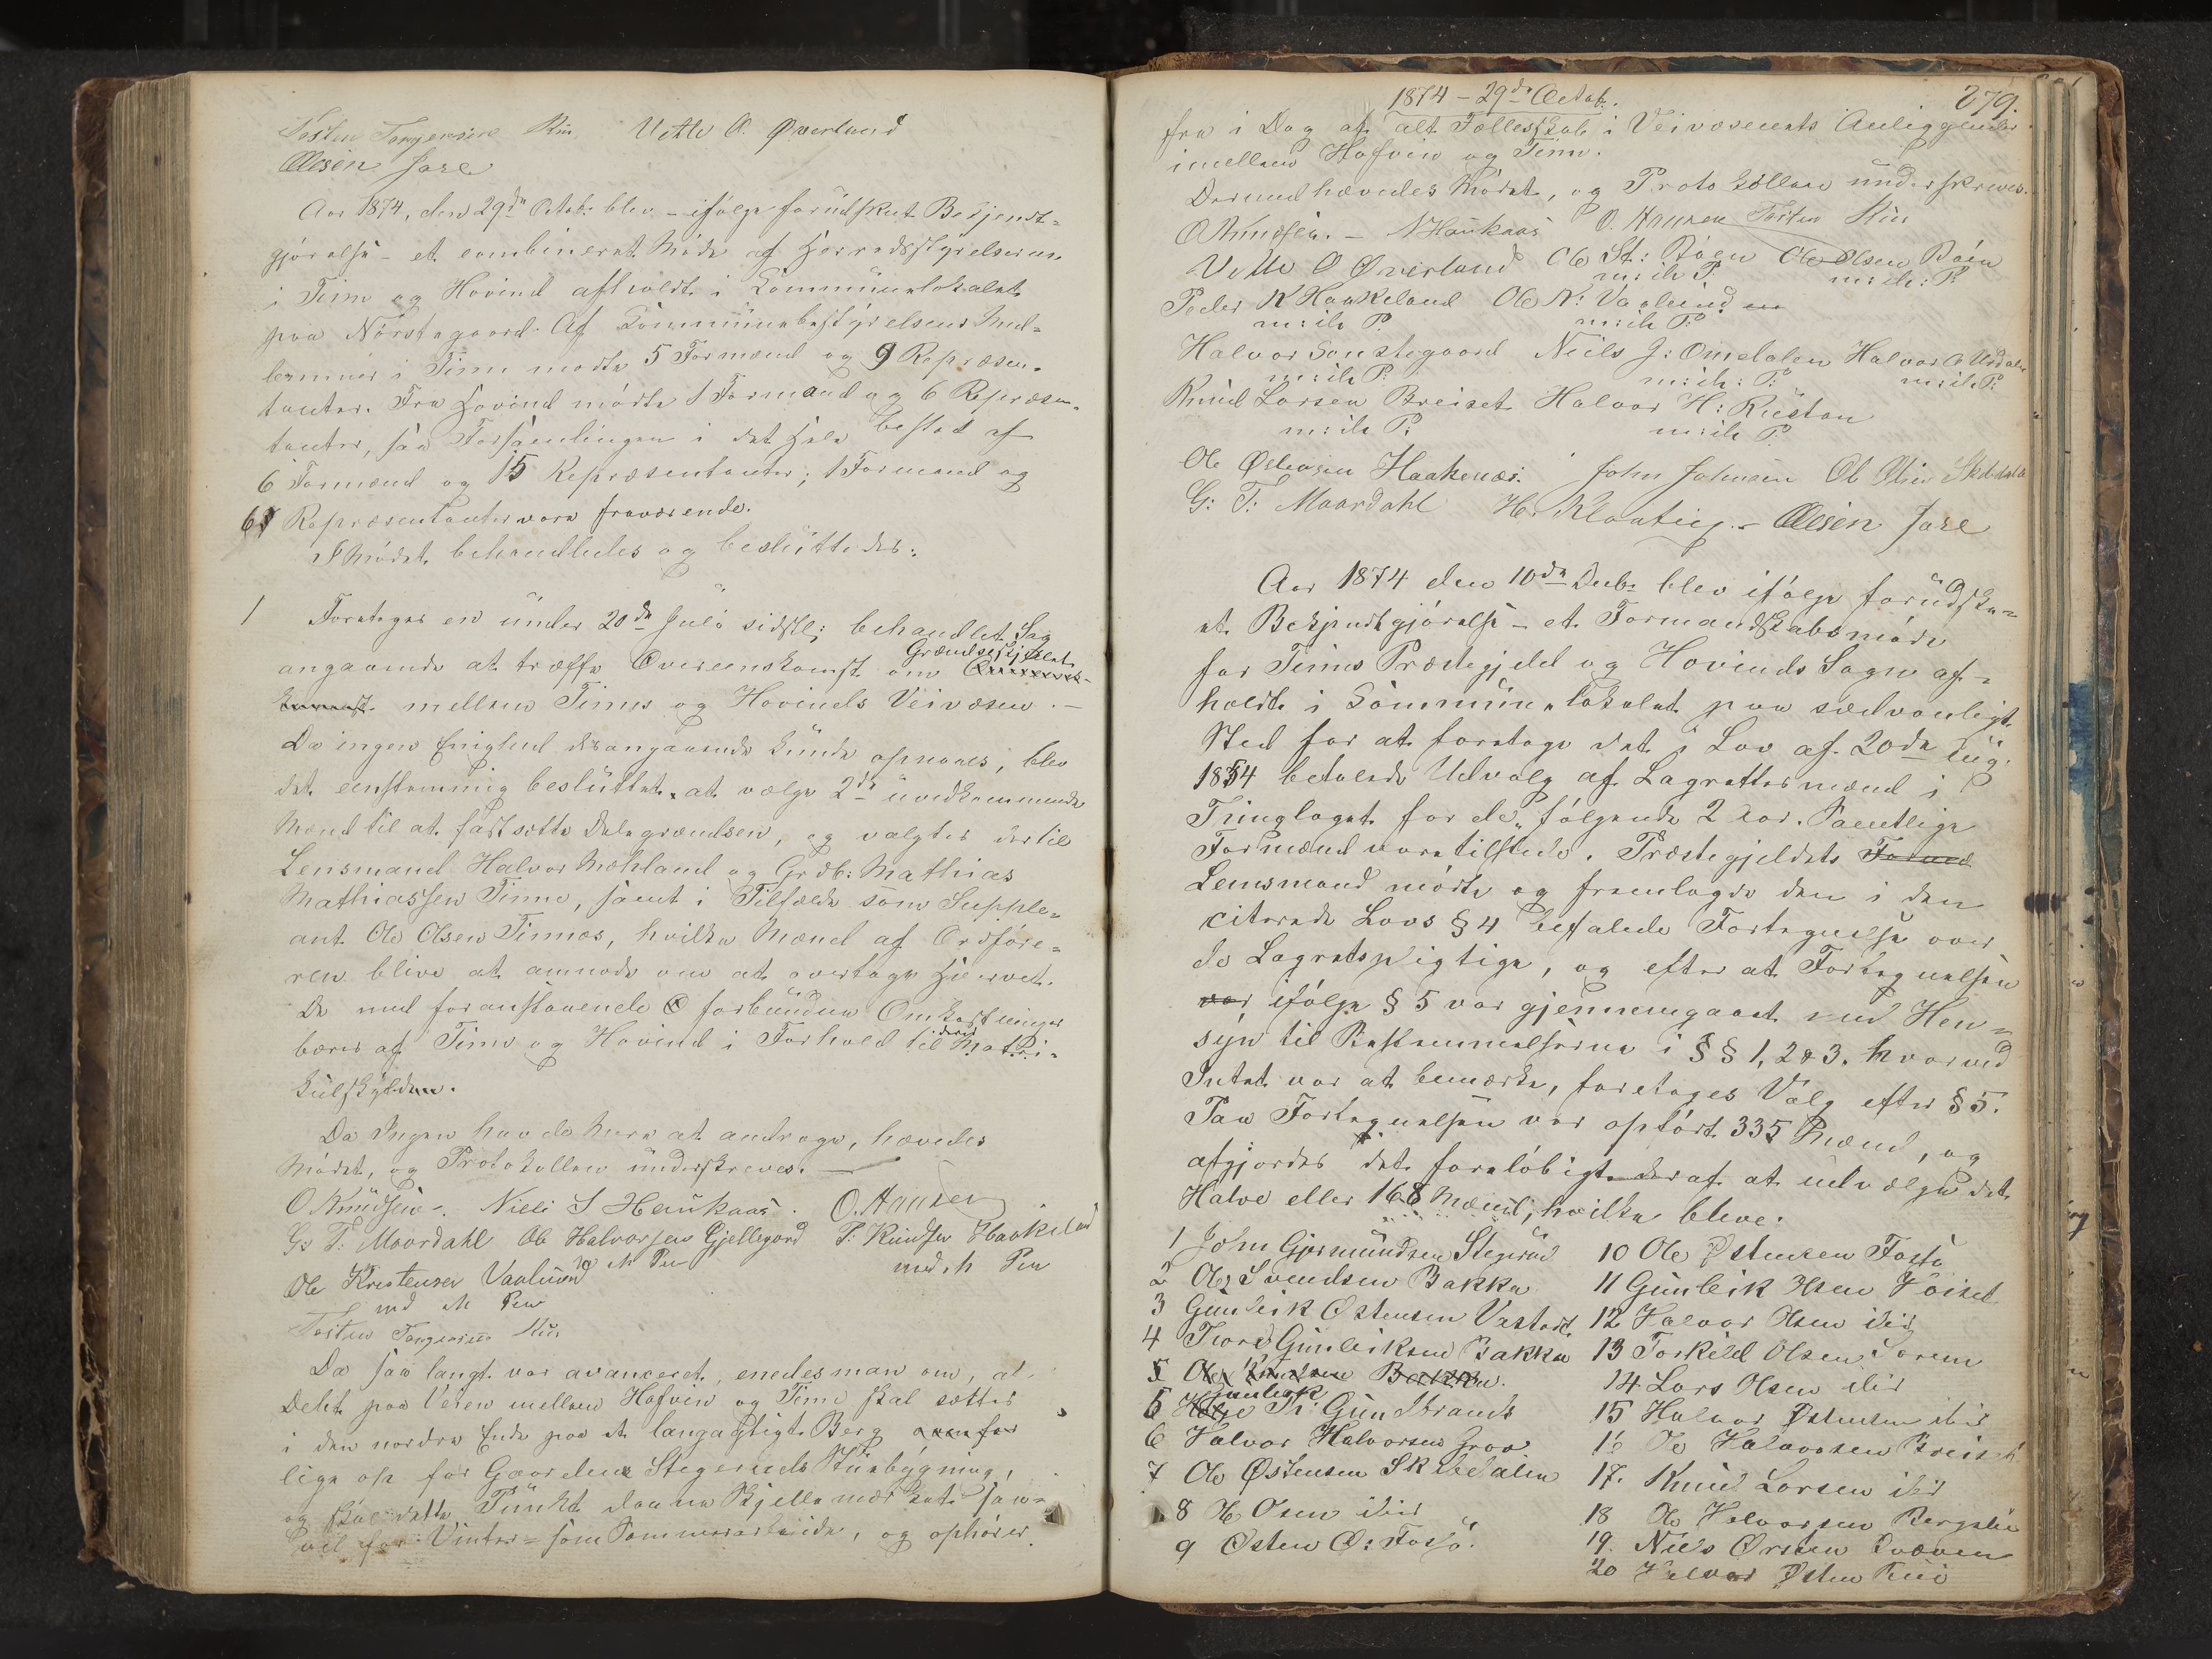 Tosten Torgersen Rue Vetle O. Øverland
Olsen Jore
Aar 1874, den 29de Octobr blev – ifølge forudskut Bekjendt-
gjørelse – et combineret Møde af Herredsstyrelserne
i Tinn og Hovind afholdt i Kommunelokalet
paa Nørstegaard. Af Kommunebestyrelsens Med-
lemmer i Tinn mødte 5 Formænd og 9 Repræsen-
tanter. Fra Hovind mødte 1 Formand og 6 Repræsen-
tanter, saa Forsamlingen i det Hele bestod af
6 Formænd og 15 Repræsentanter; 1 Formand og
6 Repræsentanter vare fraværende.
I Mødet behandledes og besluttedes:
1 Foretoges en under 20de Juli sidstl: behandlet Sag
angaaende at træffe Overeenskomst om Grændseskjellet
mellem Tinns og Hovinds Veivæsen. –
Da ingen Enighed desangaaende kunde opnaaes, blev
det eenstemmig besluttet at vælge 2de uvedkommende
Mænd til at fastsætte Delegrændsen, og valgtes dertil
Lensmand Halvor Mæhland og Grdb: Mathias
Mathiassen Tinne, samt i Tilfælde som Supple-
ant Ole Olsen Tinnæs, hvilke Mænd af Ordføre-
ren blive at anmode om at overtage Hvervet.
De med foranstaaende forbundne Omkostninger
bæres af Tinn og Hovind i Forhold til deres Matri-
kulskylden.
Da Ingen havde mere at andrage, hævedes
Mødet, og Protokollen underskreves. –
O Knudsen. Nieli S Haukaas. O. Hansen
G: T: Maardahl Ole Halvorsen Gjellegord P. Knudsen Haakeland
m Pen med h Pen
Ole Kristensen Vaalund
md M Pen
Tosten Torgersen Rue
Da saa langt var avanceret, enedes man om, at
Delet paa Veien mellem Hofvin og Tinn skal sættes
i den nordre Ende paa et langagtigt Berg
lige op for Gaarden Stegeruds Stuebygning,
og skal dette Punkt danne Skjellemærket saa-
vel for Vinter- som Sommerarbeide, og ophører
1874 – 29de Octob. 279.
fra i Dag af alt Fællesskab i Veivæsenets Anliggender
imellem Hofvin og Tinn.
Dermed hævedes Mødet, og Protokollen underskreves.
O Knudsen. – N Haukaas O. Hansen Tosten Rue
Vetle O Øverland Ole St: Bøen Ole Olsen Bøen
m: ih P. m: ih: P.
Peder K Haakeland Ole K: Vaalund
m: ih P. m: ih P:
Halvor Sønstegaard Neils J: Omdalen Halvor O Urdalen
m: ih P. m: ih: P: m: ih P:
Knud Larsen Breiset Halvor H: Rustan
m: ih P: m: ih P.
Ole Østensen Haakenæs. John Johnsen Ole Østen Skibsdalen
G: T: Maardahl H. Klonteig. – Olsen Jore
Aar 1874 den 10de Decbr blev ifølge forudsku-
et Bekjendtgjørelse – et Formandskabsmøde
for Tinns Præstegjeld og Hovinds Sogn af-
holdt i Kommunelokalet paa sædvanligt
Sted for at foretage det i Lov af 20de Aug.
1854 befalede Udvalg af Lagrettesmænd i
Tinglaget for de følgende 2 Aar. Samtlige
Formænd vare tilstede. Præstegjeldets
Lensmand mødte og fremlagde den i den
citerede Lovs § 4 befalede Fortegnelse over
de Lagretspligtige, og efter at Fortegnelsen
ifølge § 5 var gjennemgaaet med Hen-
syn til Bestemmelserne i §§ 1, 2 & 3. hvorved
Intet var at bemærke, foretoges Valg efter § 5.
Paa Fortegnelsen var opført 335 Mænd, og
afgjordes det foreløbigt deraf at udvælge det
Halve eller 168 Mænd; hvilke bleve:
1 John Gjermundsen Stegerud
2 Ole Svendsen Bakka
3 Gunleik Østensen Vastad
4 Tveor Gunleiksen Bakka
5 Ole Knudsen Bakka
5 Gunleik Th: Gunstrands
6 Halvor Halvorsen Grov
7 Ole Østensen Skibsdalen
8 H Osen ibid
9 Østen O: Fosso.
10 Ole Østensen Fosso
11 Gunleik Hsen
12 Halvor Olsen ibid
13 Torkild Olsen
14 Lars Olsen ibid
15 Halvor Østensen ibid
16 Ole Halvorsen Breiset
17. Knud Larsen ibid
18 Ole Halvorsen Bergslie
19. Niels Orsen
20 Halvor Østen